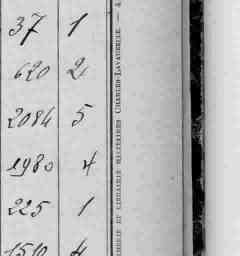 37 1
620 2
2084 5
1980 4
225 1
1510 4
IMERIE ET LIBRAIRIE MILITAIRES CHARLES-LAVAUZELLE. —